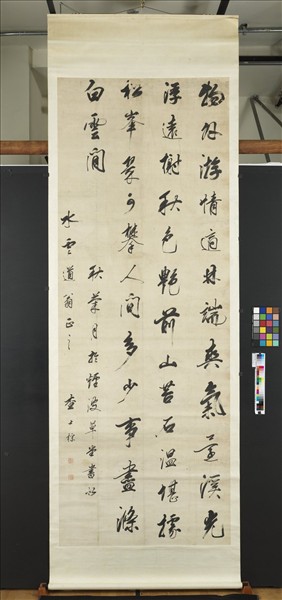 物外游情適林端爽氣還溪光
浮遠樹秋色艷前山苔石溫堪據
松峯翠可攀人間多少事盡滌
白雲間
秋月於煙波草堂書似
水雲道翁正之
查士標